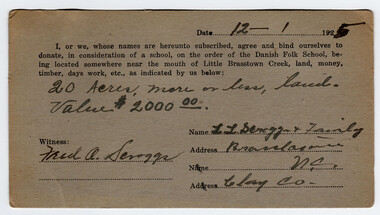 Date 12-1 1925
I, or we, whose names are hereunto subscribed, agree and bind ourselves to
donate, in consideration of a school, on the order of the Danish Folk School, be-
ing located somewhere near the mouth of Little Brasstown Creek, land, money,
timber, days work, etc., as indicated by us below:
20 Acres, more or less, land-
Value $2000 00.
Name L L Scroggs & Family
Witness: Address Brasstown
Fred O. Scroggs Name N.C.
Address Clay Co-